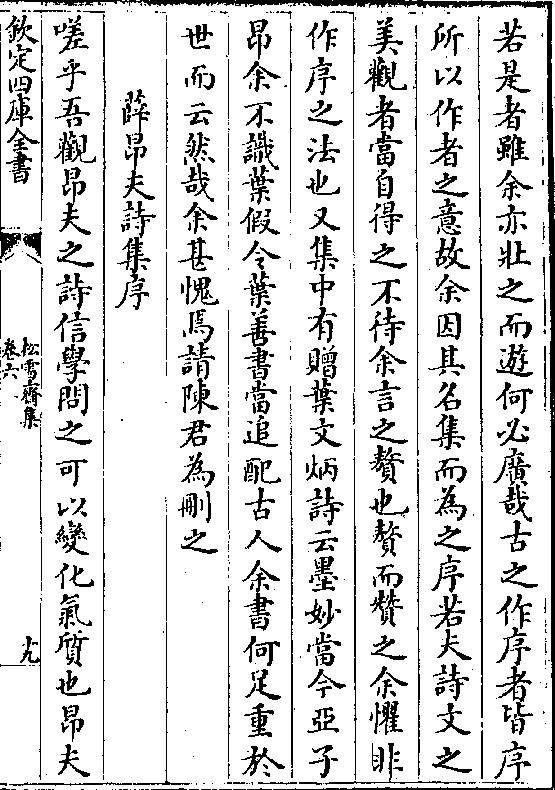 若是者雖余亦壯之而遊何必廣哉古之作序者皆序
所以作者之意故余因其名集而為之序若夫詩文之
美觀者當自得之不待余言之贅也贅而贊之余懼非
作序之法也又集中有贈葉文炳詩云墨妙當今亞子
昂余不識葉假令葉善書當追配古人余書何足重於
世而云然哉余甚愧焉請陳君為刪之
薛昂夫詩集序
嗟乎吾觀昂夫之詩信學問之可以變化氣質也昂夫
欽定四庫全書
松雪齋集
卷六
九